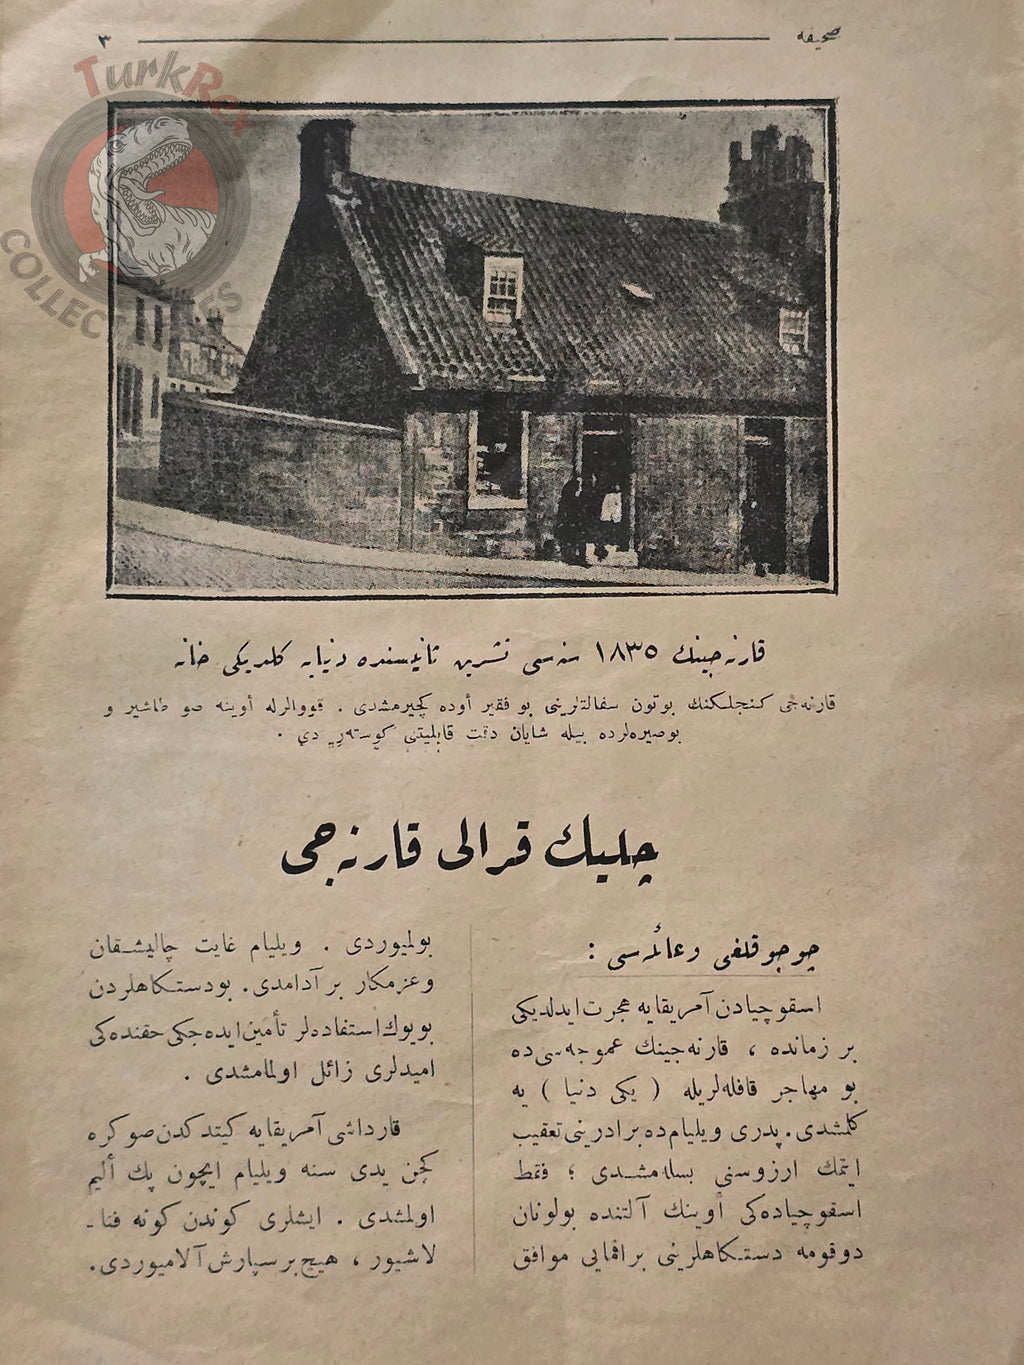 صحیفه ٣
TurkRex
COLLECTIBLES
قارنه‌جینك ١٨٣٥ سنه‌سی تشرین ثانیسنده دنیایه كلدیكی خانه
قارنه‌جی كنجلكنك بوتون سفالتلرینی بو فقیر أوده كچیرمشدی . قووالرله أوینه صو طاشیر و
بوصیره‌لرده بیله شایان دقت قابلیتی كوسته‌ریردی .
چلیك قرالی قارنه‌جی
چوجوقلغی وعائله‌سی :
اسقوچیادن آمریقایه هجرت ایدلدیكی
بر زمانده ، قارنه‌جینك عموجه‌سی ده
بو مهاجر قافله‌لریله ( یكی دنیا ) یه
كلمشدی . پدری ویلیام ده برادرینی تعقیب
ایتمك ارزوسنی بسله‌مشدی ؛ فقط
اسقوچیاده‌كی أوینك آلتنده بولونان
دوقومه دستكاهلرینی براقمایی موافق
بولمیوردی . ویلیام غایت چالیشقان
وعزمكار بر آدامدی . بودستكاهلردن
بویوك استفاده‌لر تأمین ایده‌جكی حقنده‌كی
امیدلری زائل اولمامشدی .
قارداشی آمریقایه كیتدكدن صوكره
كچن یدی سنه ویلیام ایچون پك ألیم
اولمشدی . ایشلری كوندن كونه فنا-
لاشیور ، هیچ برسپارش آلامیوردی .